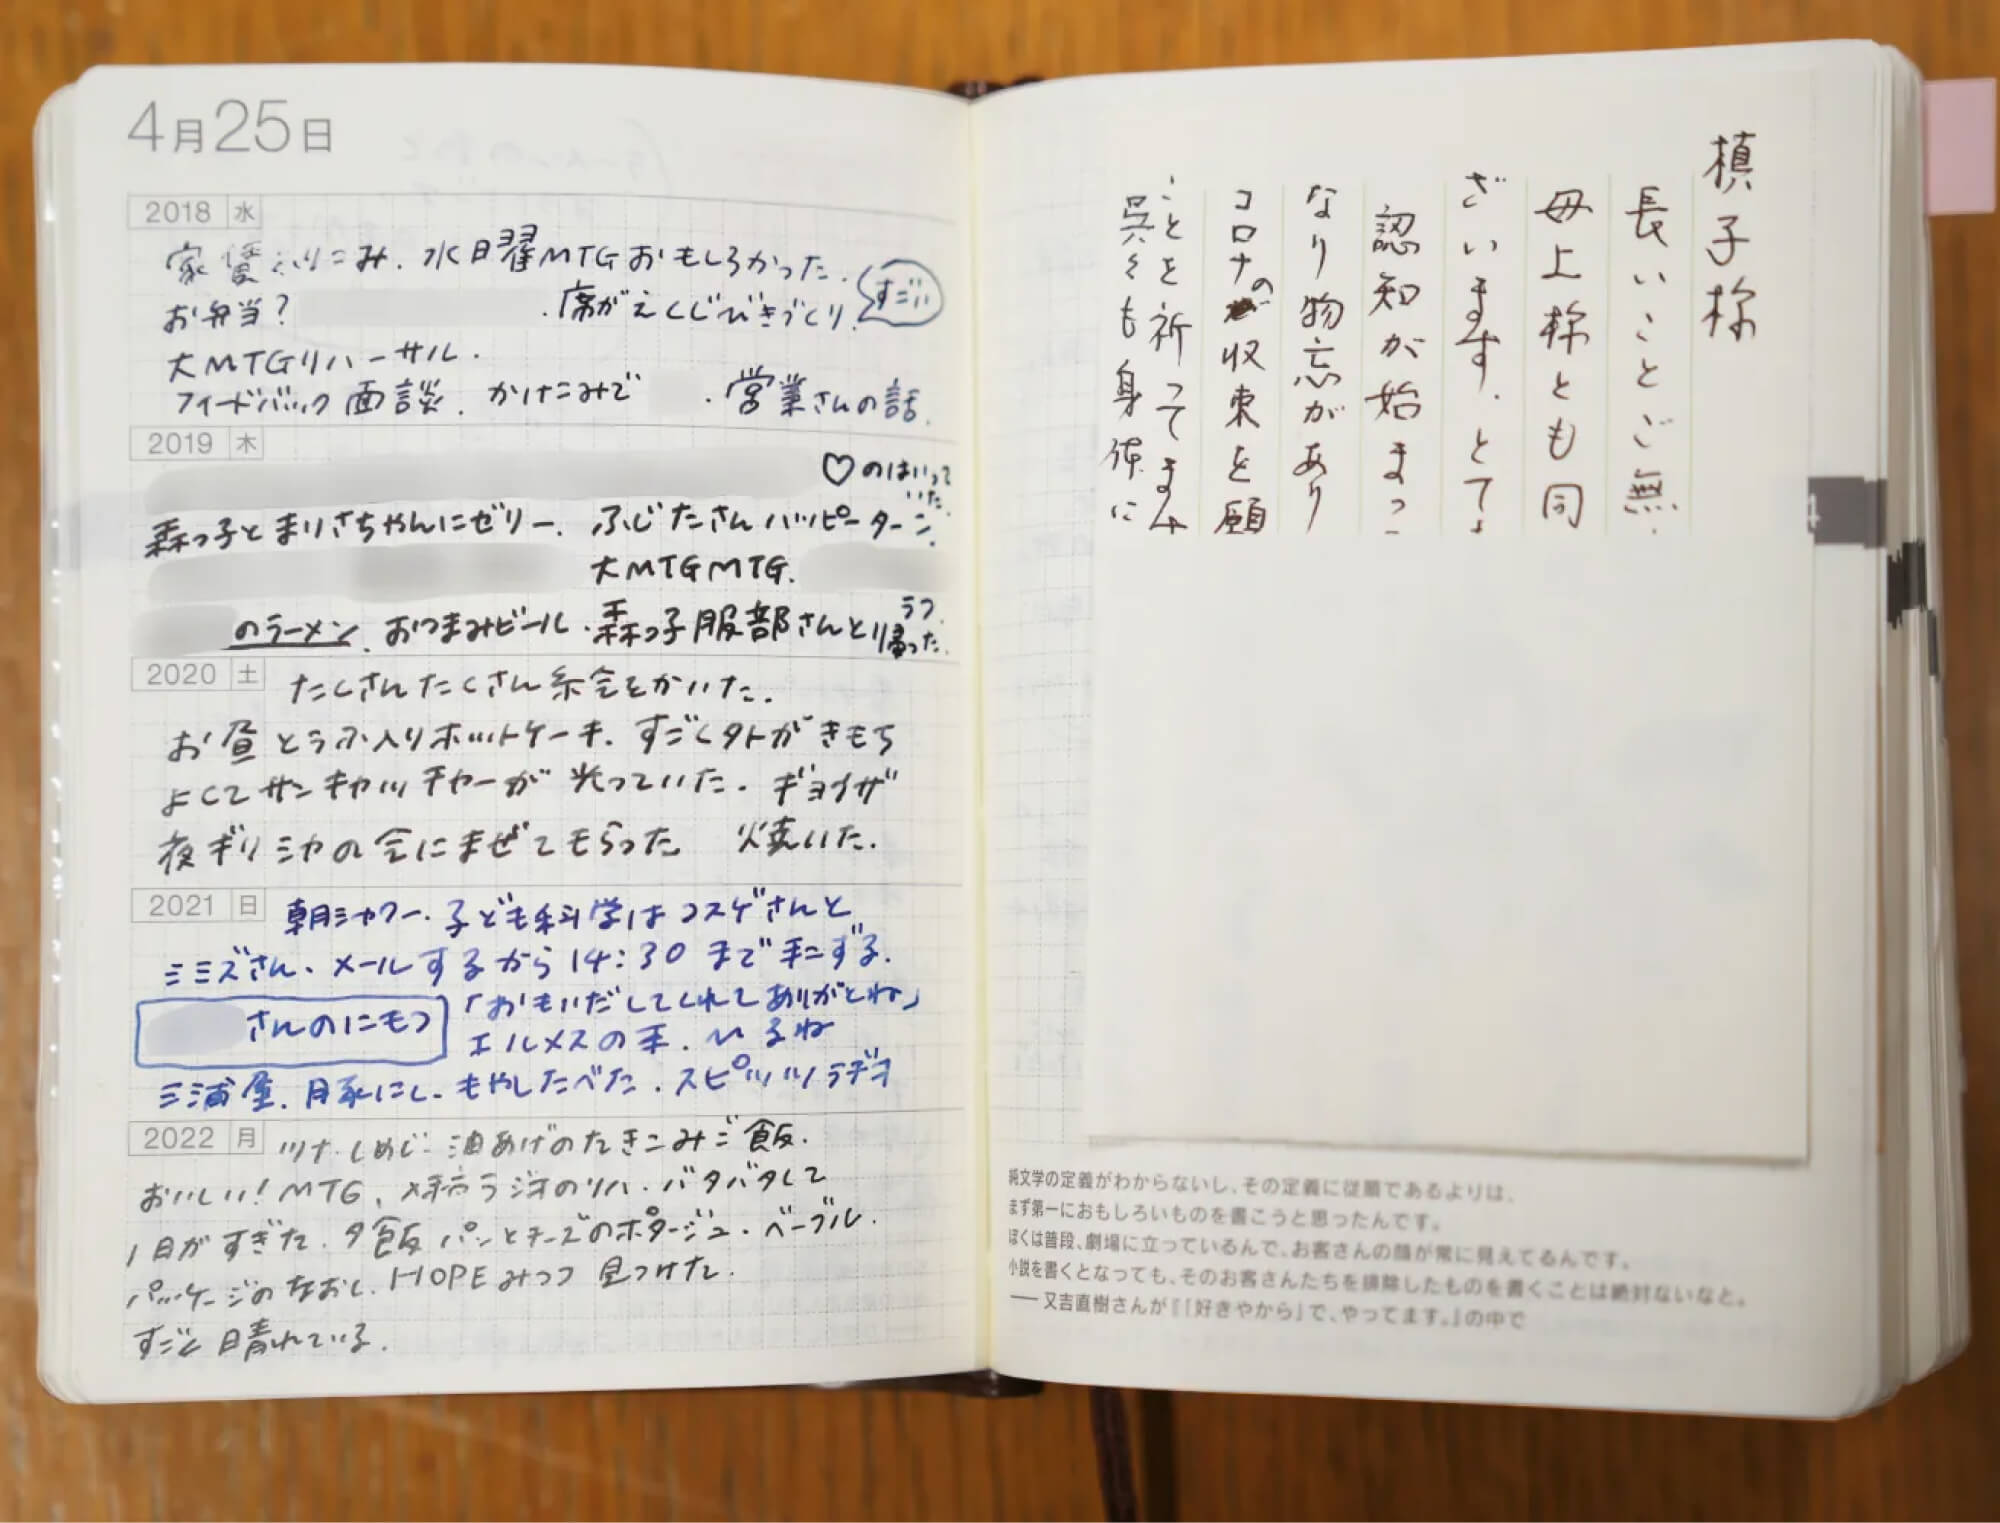 4月25日
2018 水
家賃ふりこみ. 水曜MTGおもしろかった.
お弁当? . 席がえくじびきづくり. すごい
大MTGリハーサル.
フィードバック面談. かけこみで . 営業さんの話.
2019 木
♡のはいっていた.
森っ子とまりさちゃんにゼリー. ふじたさんハッピーターン.
大MTGMTG.
のラーメン. おつまみビール. 森っ子服部さんと帰った.
2020 土
たくさんたくさん絵をかいた.
お昼とうふ入りホットケーキ. すごく外がきもち
よくてサンキャッチャーが光っていた. ギョウザ
夜ギリシャの会にまぜてもらった 焼いた.
2021 日
朝シャワー. 子ども科学はコスゲさんと
ミミズさん. メールするから14:30まで
さんのにもつ
「おもいだしてくれてありがとね」
エルメスの手. いるね
三浦屋. 豚にし. もやしたべた. スピッツラヂオ
2022 月
ツナ. しめじ 油あげのたきこみご飯.
おいしい! MTG. のリハ. バタバタして
1日がすぎた. 夕飯 パンとチーズのポタージュ. ベーグル.
パッケージのなおし. HOPEみつつ 見つけた.
すごく晴れている.
槙子様
長いことご無
母上様とも同
ざいます. とて
認知が始まっ
なり物忘れがあり
コロナの収束を願
ことを祈ってます
呉々も身体に
純文学の定義がわからないし、その定義に従順であるよりは、
まず第一におもしろいものを書こうと思ったんです。
ぼくは普段、劇場に立っているんで、お客さんの顔が常に見えてるんです。
小説を書くとなっても、そのお客さんたちを排除したものを書くことは絶対ないなと。
── 又吉直樹さんが『「好きやから」で、やってます。』の中で
4